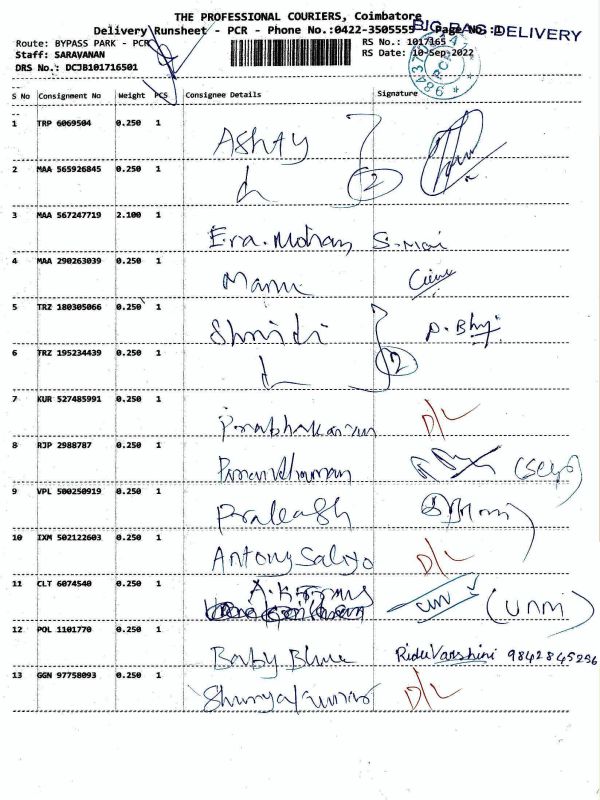 THE PROFESSIONAL COURIERS, Coimbatore
Delivery Runsheet - PCR - Phone No.:0422-3505555 Page No :1
BIG BAG DELIVERY
Route: BYPASS PARK - PCR RS No.: 1017165
Staff: SARAVANAN RS Date: 10-Sep-2022
DRS No.: DCJB101716501
PCR
98437
S No Consignment No Weight PCS Consignee Details Signature
1 TRP 6069504 0.250 1
2 MAA 565926845 0.250 1 2
3 MAA 567247719 2.100 1 Era.Mohan S.Mani
4 MAA 290263039 0.250 1 Manu
5 TRZ 180305066 0.250 1 Shridi
6 TRZ 195234439 0.250 1 2
7 KUR 527485991 0.250 1 Prabhakaran D/L
8 RJP 2988787 0.250 1
9 VPL 500250919 0.250 1 Prakash
10 IXM 502122603 0.250 1 Antony D/L
11 CLT 6074540 0.250 1 (UNNI)
12 POL 1101770 0.250 1 Baby Blue RiduVarshini 9842845296
13 GGN 97758093 0.250 1 D/L